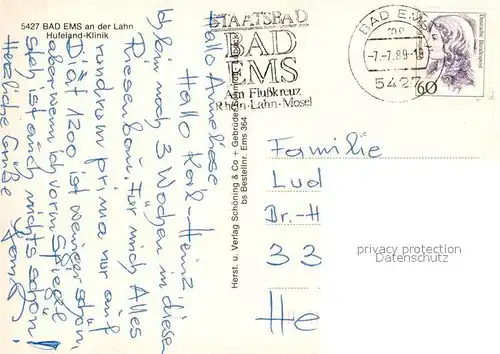 5427 BAD EMS an der Lahn
Hufeland-Klinik
Hallo Anneliese
Hallo Karl-Heinz,
bin noch 3 Wochen in diesem
Riesenbau. Für mich Alles
rundrum prima nur auf
Diät 1200 ist weniger schön,
aber wenn ich vorm Spiegel
steh ist auch nichts schön!
Herzliche Grüße
Herst. u. Verlag Schöning & Co + Gebrüder Schmidt
bs Bestellnr. Ems 364
STAATSBAD
BAD
EMS
Am Flußkreuz
Rhein-Lahn-Mosel
BAD EMS
-7.-7.89-18
5427
Deutsche Bundespost
60
Familie
Lud
Dr.-H
33
He
privacy protection
Datenschutz